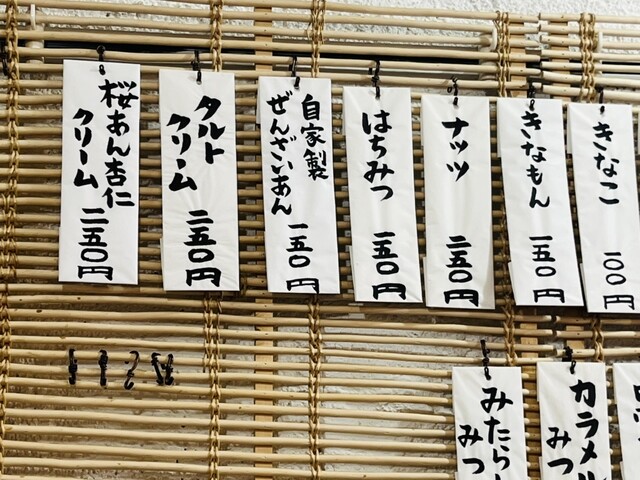 きなこ 一〇〇円
きなもん 一五〇円
ナッツ 二五〇円
はちみつ 一五〇円
自家製
ぜんざいあん 一五〇円
タルト
クリーム 二五〇円
桜あん杏仁
クリーム 二五〇円
カラメル
みつ
みたらし
みつ